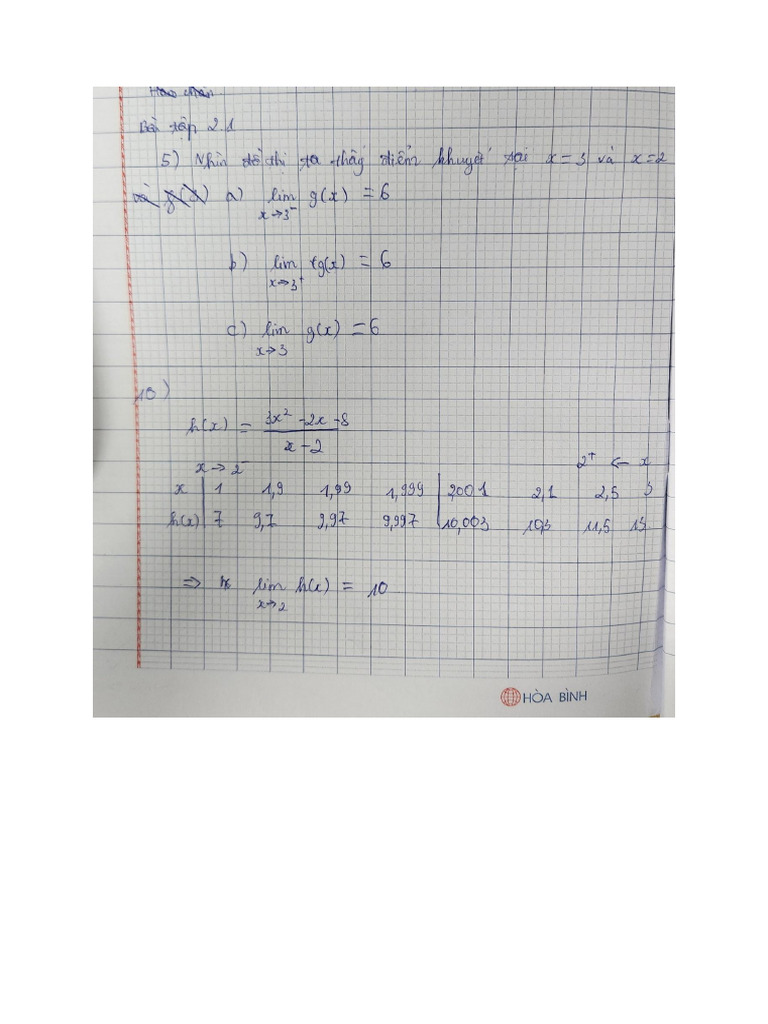 Bài tập 2.1
5) Nhìn đồ thị ta thấy điểm khuyết tại x = 3 và x = 2
và g(x) a) lim g(x) = 6
x→3⁻
b) lim g(x) = 6
x→3⁺
c) lim g(x) = 6
x→3
10)
h(x) = (3x² - 2x - 8)/(x - 2)
x → 2⁻ 2⁺ ← x
x | 1 1,9 1,99 1,999 | 2,001 2,1 2,5 3
h(x) | 7 9,7 9,97 9,997 | 10,003 10,3 11,5 13
⇒ lim h(x) = 10
x→2
HÒA BÌNH